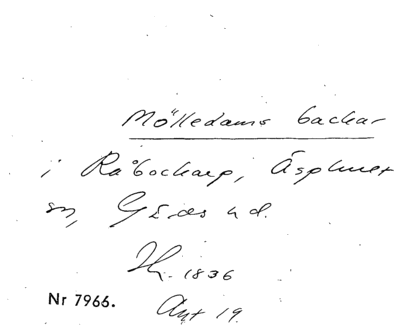 Mölledams backar
i Råbockarp, Äsphult
sn, Gärds hd.
1836
Nr 7966. Avt 19